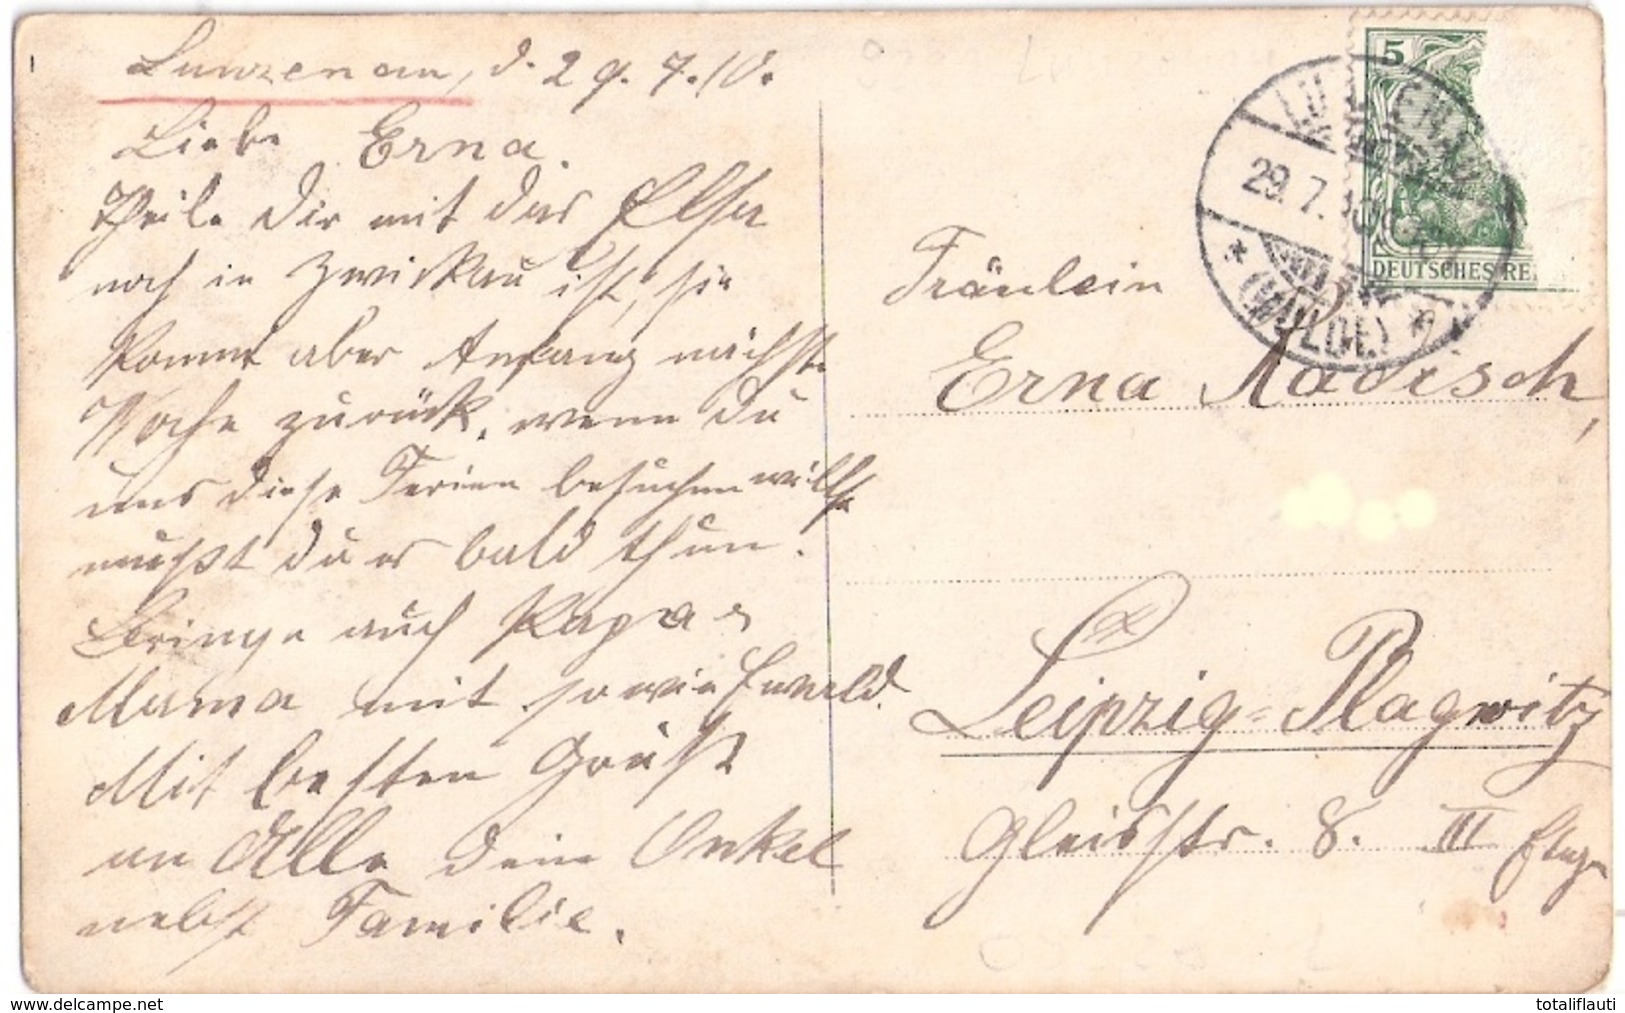 Lunzenau, d. 29.7.10.
Liebe Erna.
Theile Dir mit das Elsa
noch in Zwickau ist, sie
kommt aber Anfang nächste
Woche zurück, wenn Du
uns diese Ferien besuchen willst
mußt du es bald thun.
Bringe auch Papa u
Mama mit sowie Ewald.
Mit besten Grüß
an Alle dein Onkel
nebst Familie.
5
DEUTSCHES RE
LUNZENAU
29.7.10
* (MULDE) *
Fräulein
Erna Radisch,
Leipzig=Plagwitz
Gleisstr. 8. III Etage
www.delcampe.net
totaliflauti